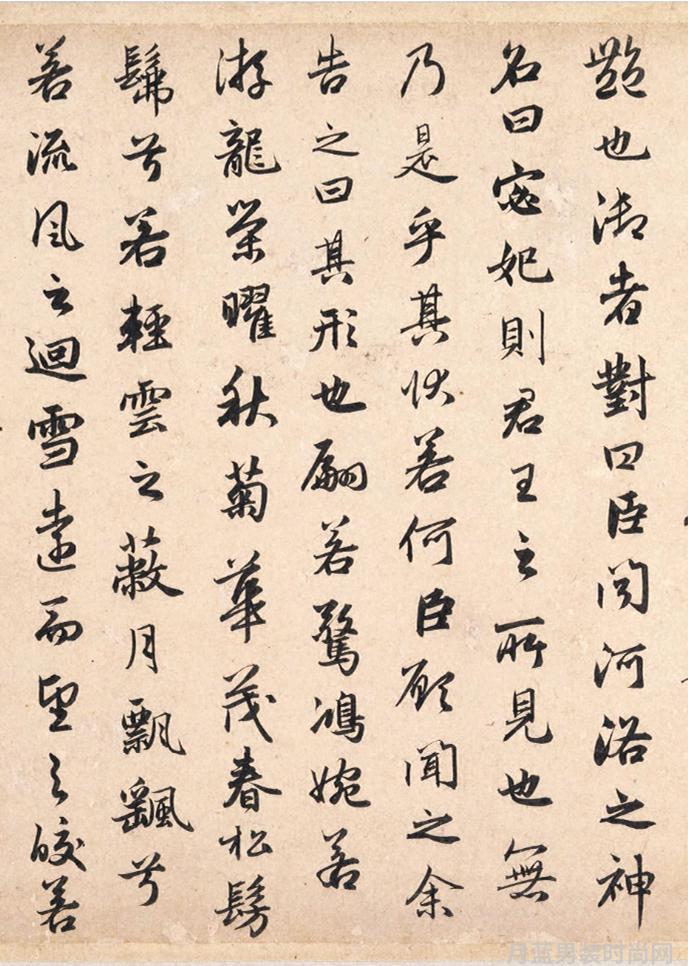 艷也御者對曰臣聞河洛之神
名曰宓妃則君王之所見也無
乃是乎其狀若何臣願聞之余
告之曰其形也翩若驚鴻婉若
游龍榮曜秋菊華茂春松髣
髴兮若輕雲之蔽月飄颻兮
若流風之迴雪遠而望之皎若
月蓝男装时尚网